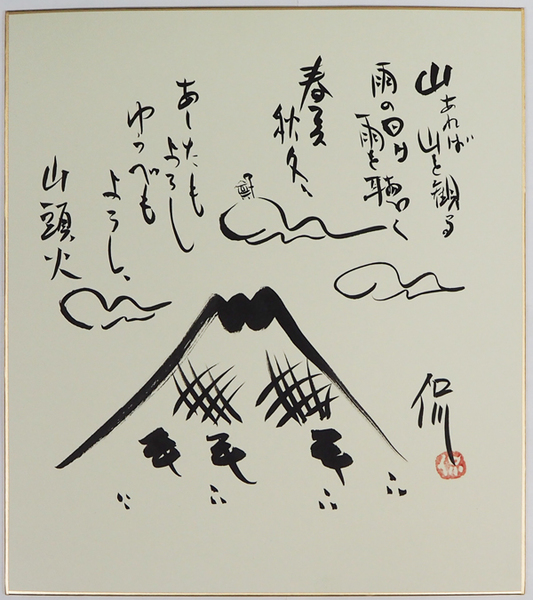 山あれば山を観る
雨の日は雨を聴く
春夏秋冬、
あしたもよろし
ゆうべもよろし、
山頭火
侃